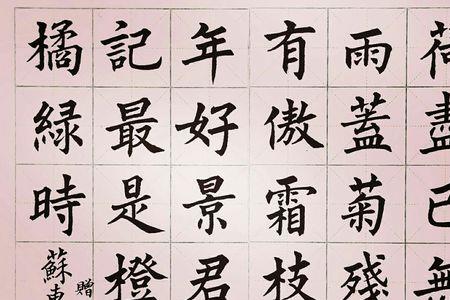 荷盡已無
雨蓋菊殘
有傲霜枝
年好景君
記最是橙
橘綠時
贈
蘇東